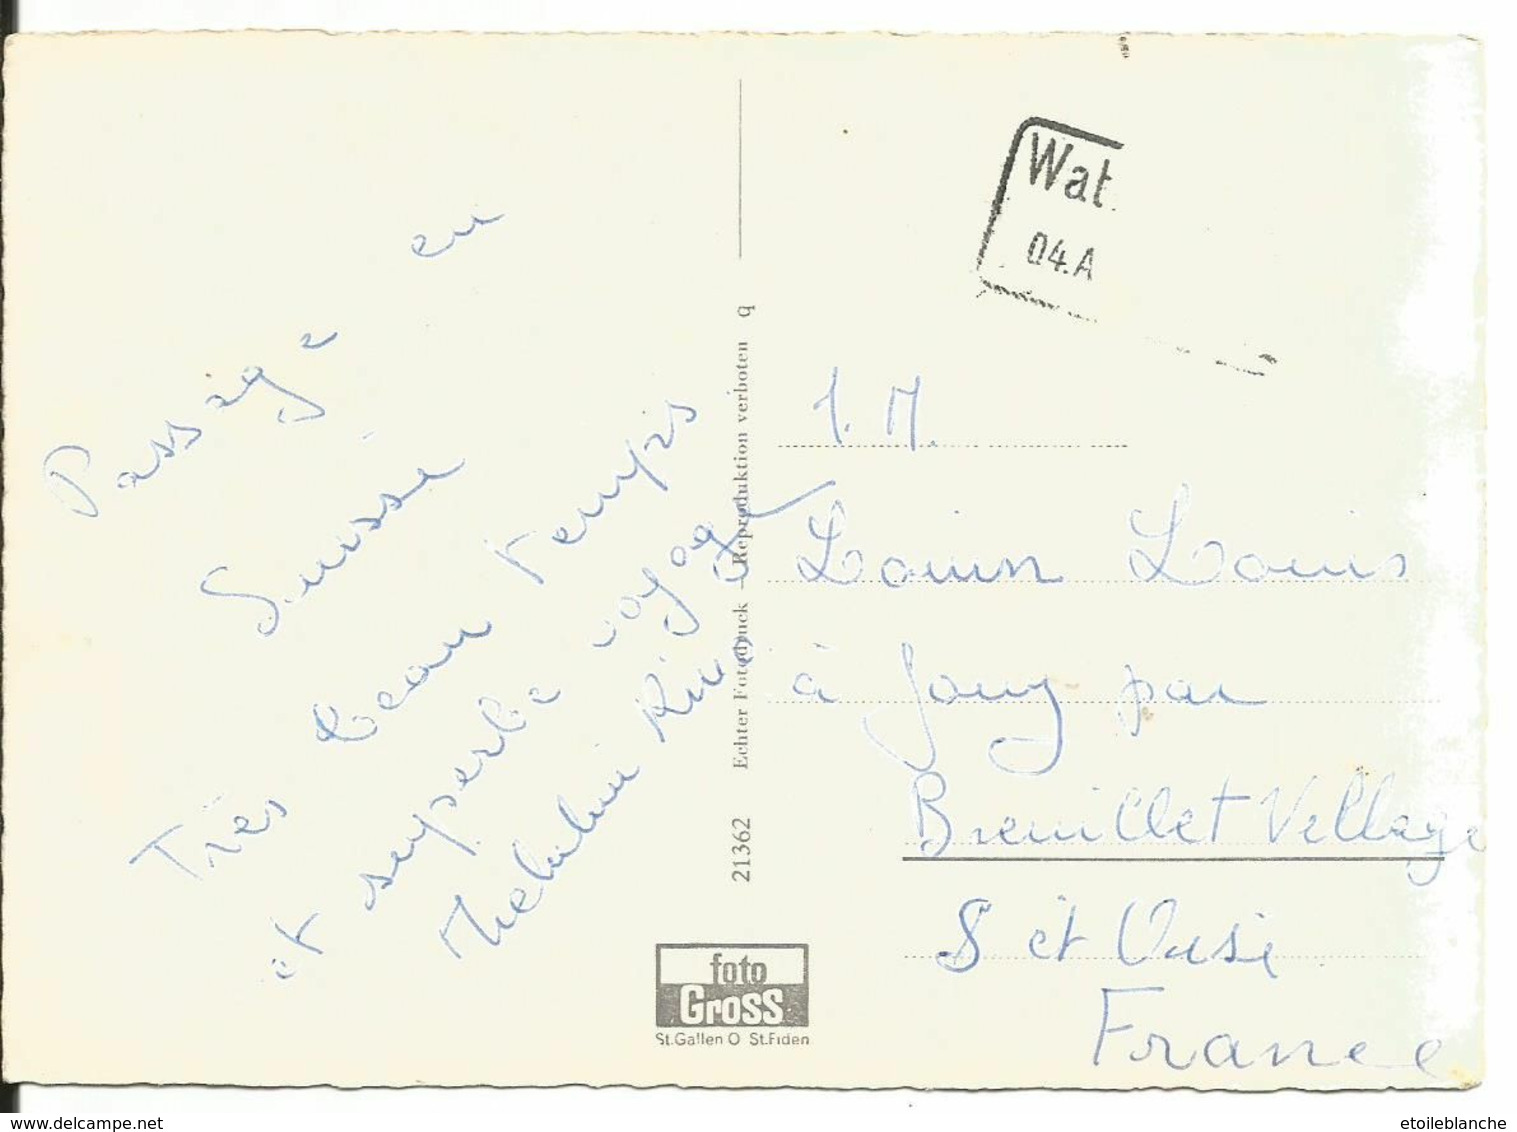 Passage en
Suisse
Très beau temps
et superbe voyage
Wat.
04.A
J. M.
Louis
à Jouy par
Breuillet Village
S et Oise
France
21362 Echter Fotodruck — Reproduktion verboten q
foto
Gross
St.Gallen O St.Fiden
delcampe.net
etoileblanche